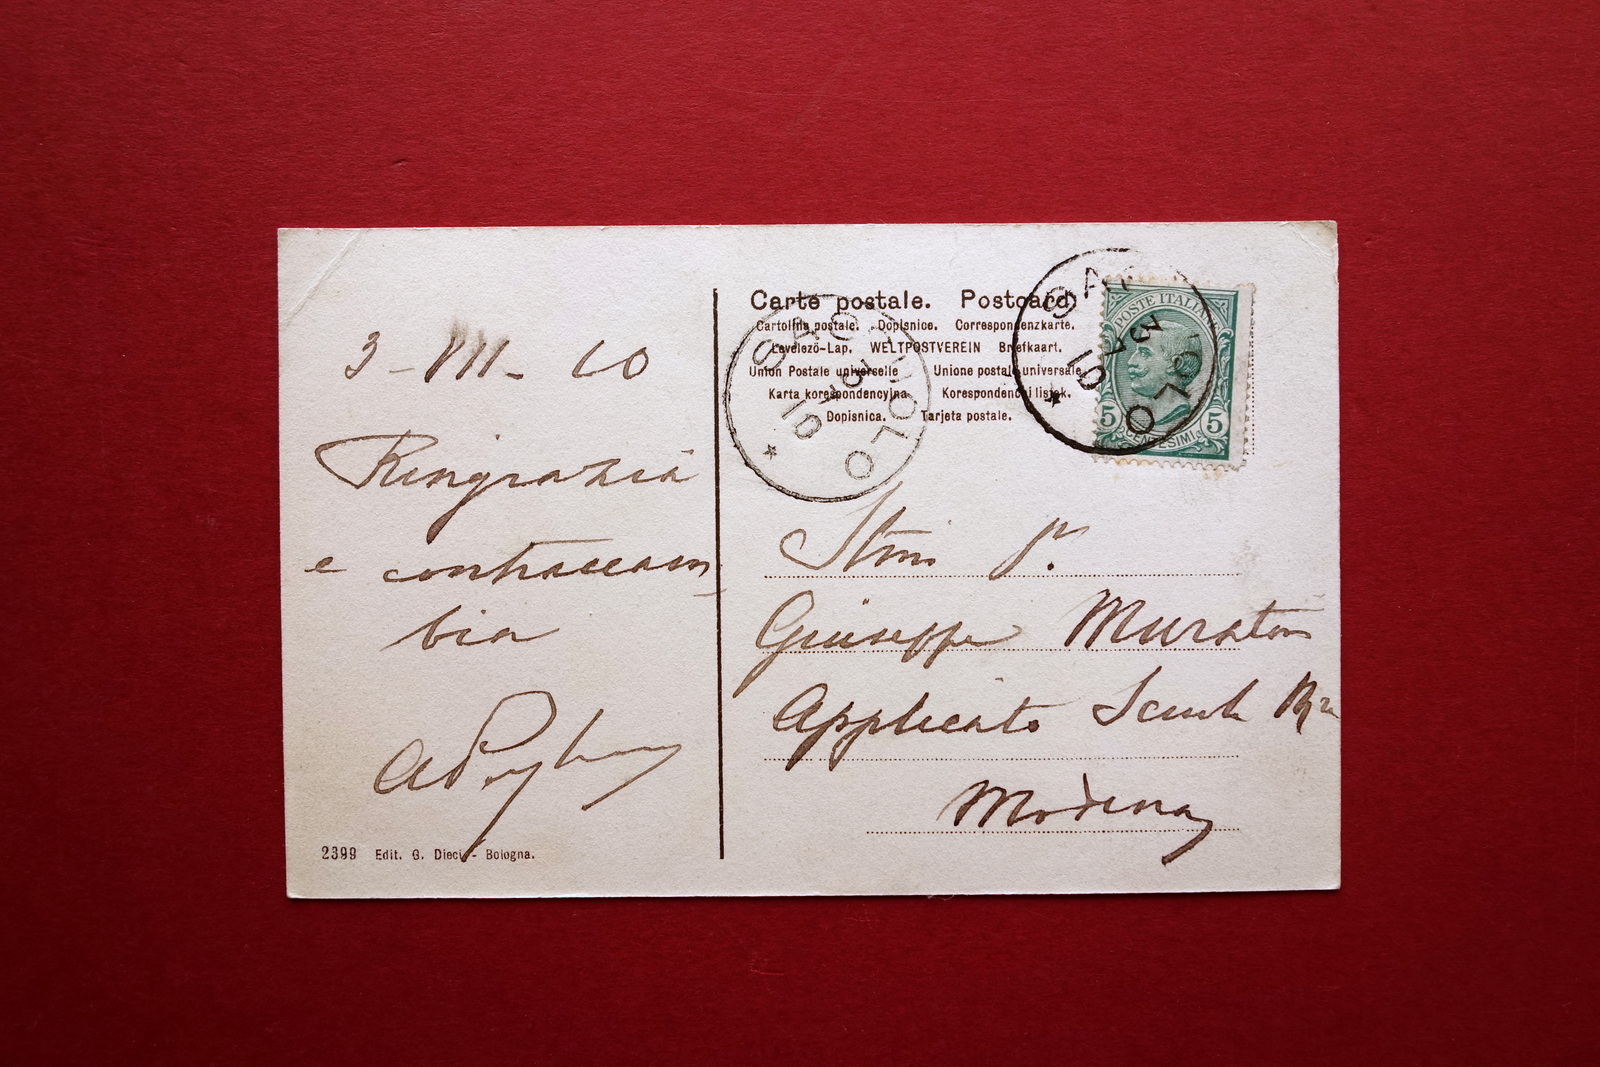 3 - VII - 10
Ringrazia
e contraccam
bia
2399 Edit. G. Dieci - Bologna.
Carte postale. Postcard
Cartolina postale. Dopisnice. Correspondenzkarte.
Levelező-Lap. WELTPOSTVEREIN Briefkaart.
Union Postale universelle Unione postale universale
Karta korespondencyjna Korespondencni listek.
Dopisnica. Tarjeta postale.
POSTE ITALIANE
5 CENTESIMI 5
3 7 10
10
Giuseppe Muratori
Applicato
Modena